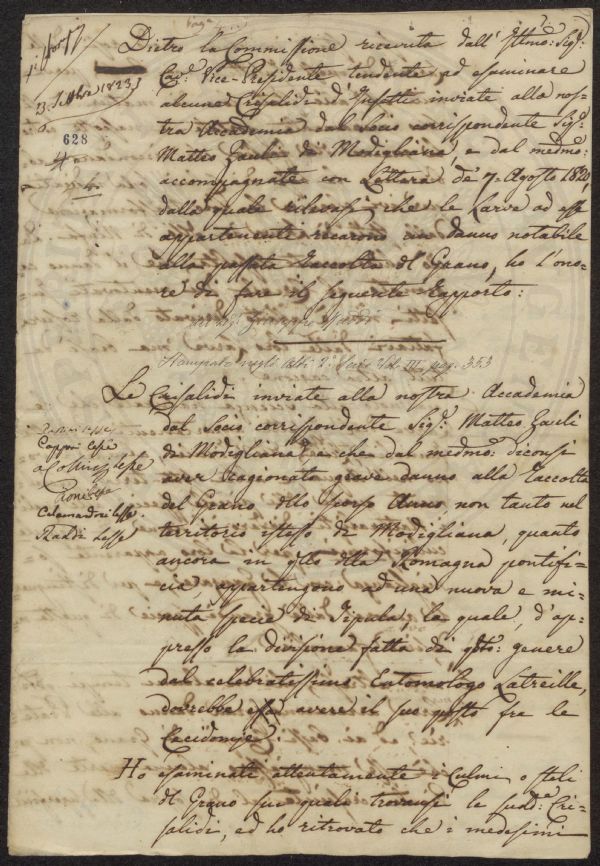 3. Sttbre 1823
628
4
Dietro la Commissione ricevuta dall' Illmo: Sig:
Cav: Vice-Presidente tendente ad esaminare
alcune Crisalidi d'Insetti inviate alla nos-
tra Accademia dal Socio corrispondente Sig:
Matteo Zauli di Modigliana, e dal medmo:
accompagnate con Lettera de' 7. Agosto 1820,
dalla quale rilevasi che le Larve ad esse
appartenente recarono un danno notabile
alla passata raccolta del Grano, ho l'ono-
re di fare il seguente rapporto:
del Sig. Giuseppe Raddi
Stampato negli Atti 2a. Serie Vol. III. pag. 353
Le Crisalidi inviate alla nostra Accademia
dal Socio corrispondente Sig: Matteo Zauli
di Modigliana e che dal medmo: diconsi
aver cagionato grave danno alla raccolta
del Grano dello scorso Anno, non tanto nel
territorio istesso di Modigliana, quanto
ancora in qto della Romagna pontifi-
cia, appartengono ad una nuova e mi-
nuta specie di Tipula, la quale, d'ap-
presso la divisione fatta di qto: genere
dal celebratissimo Entomologo Latreille,
dovrebbe avere il suo posto fra le
Cecidomje.
Capponi lesse
Calamandrei lesse.
Raddi lesse
Ho esaminate attentamente i Culmi o steli
del Grano sui quali trovansi le sudd:e Cri-
salidi, ed ho ritrovato che i medesimi